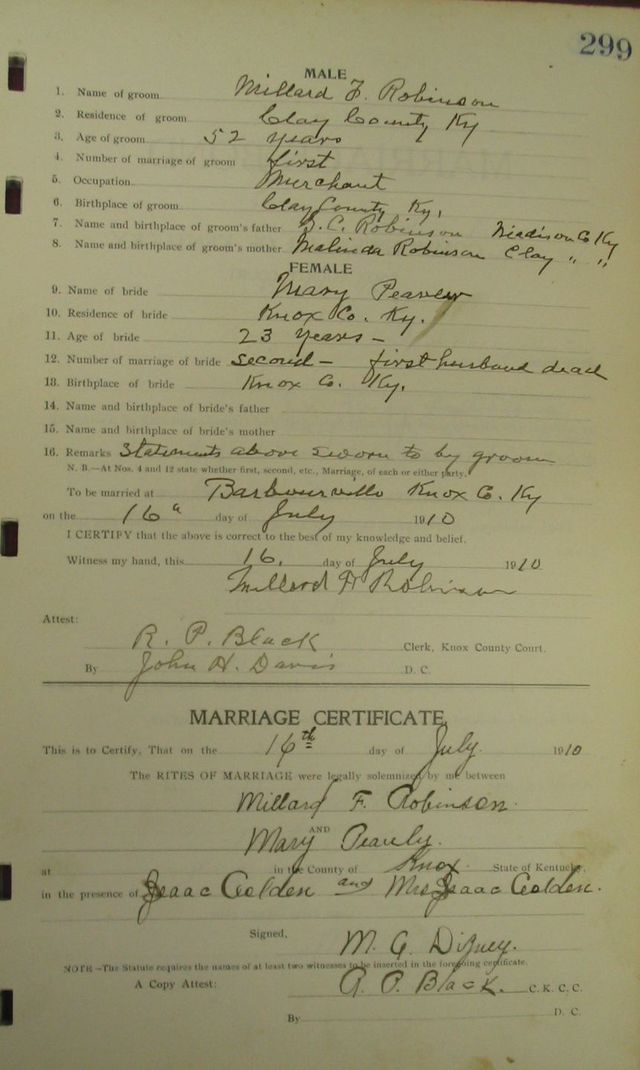 299
MALE
1. Name of groom Millard F. Robinson
2. Residence of groom Clay County Ky
3. Age of groom 52 years
4. Number of marriage of groom first
5. Occupation Merchant
6. Birthplace of groom Clay County Ky,
7. Name and birthplace of groom's father C. Robinson Madison Co Ky
8. Name and birthplace of groom's mother Malinda Robinson Clay " "
FEMALE
9. Name of bride Mary
10. Residence of bride Knox Co. Ky.
11. Age of bride 23 years -
12. Number of marriage of bride second - first husband dead
13. Birthplace of bride Knox Co. Ky.
14. Name and birthplace of bride's father
15. Name and birthplace of bride's mother
16. Remarks Statements above sworn to by groom
N. B.—At Nos. 4 and 12 state whether first, second, etc., Marriage, of each or either party.
To be married at Barbourville Knox Co. Ky
on the 16 day of July 1910
I CERTIFY that the above is correct to the best of my knowledge and belief.
Witness my hand, this 16. day of July 1910
Millard F Robinson
Attest:
R. P. Black Clerk, Knox County Court.
By John H. Davis D. C.
MARRIAGE CERTIFICATE
This is to Certify, That on the 16th day of July. 1910
The RITES OF MARRIAGE were legally solemnized by me between
Millard F. Robinson.
AND
Mary
at in the County of Knox State of Kentucky,
in the presence of Isaac Golden and Mrs Isaac Golden.
Signed, M. G.
NOTE—The Statute requires the names of at least two witnesses to be inserted in the foregoing certificate.
A Copy Attest: R. P. Black. C. K. C. C.
By D. C.